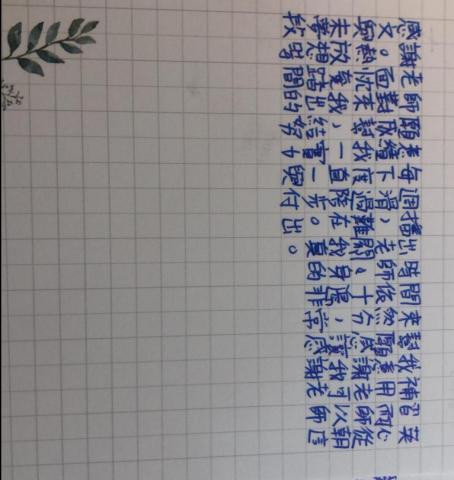 感謝老師願意每週撥出時間來幫我補習英
文。面對成績下滑，老師依然願意用耐心
與熱忱來幫我度過難關。十分感謝老師從
未放棄我，一直陪在我身邊，讓我可以朝
夢想踏出結實一步。真的非常感謝老師這
段時間的努力與付出。